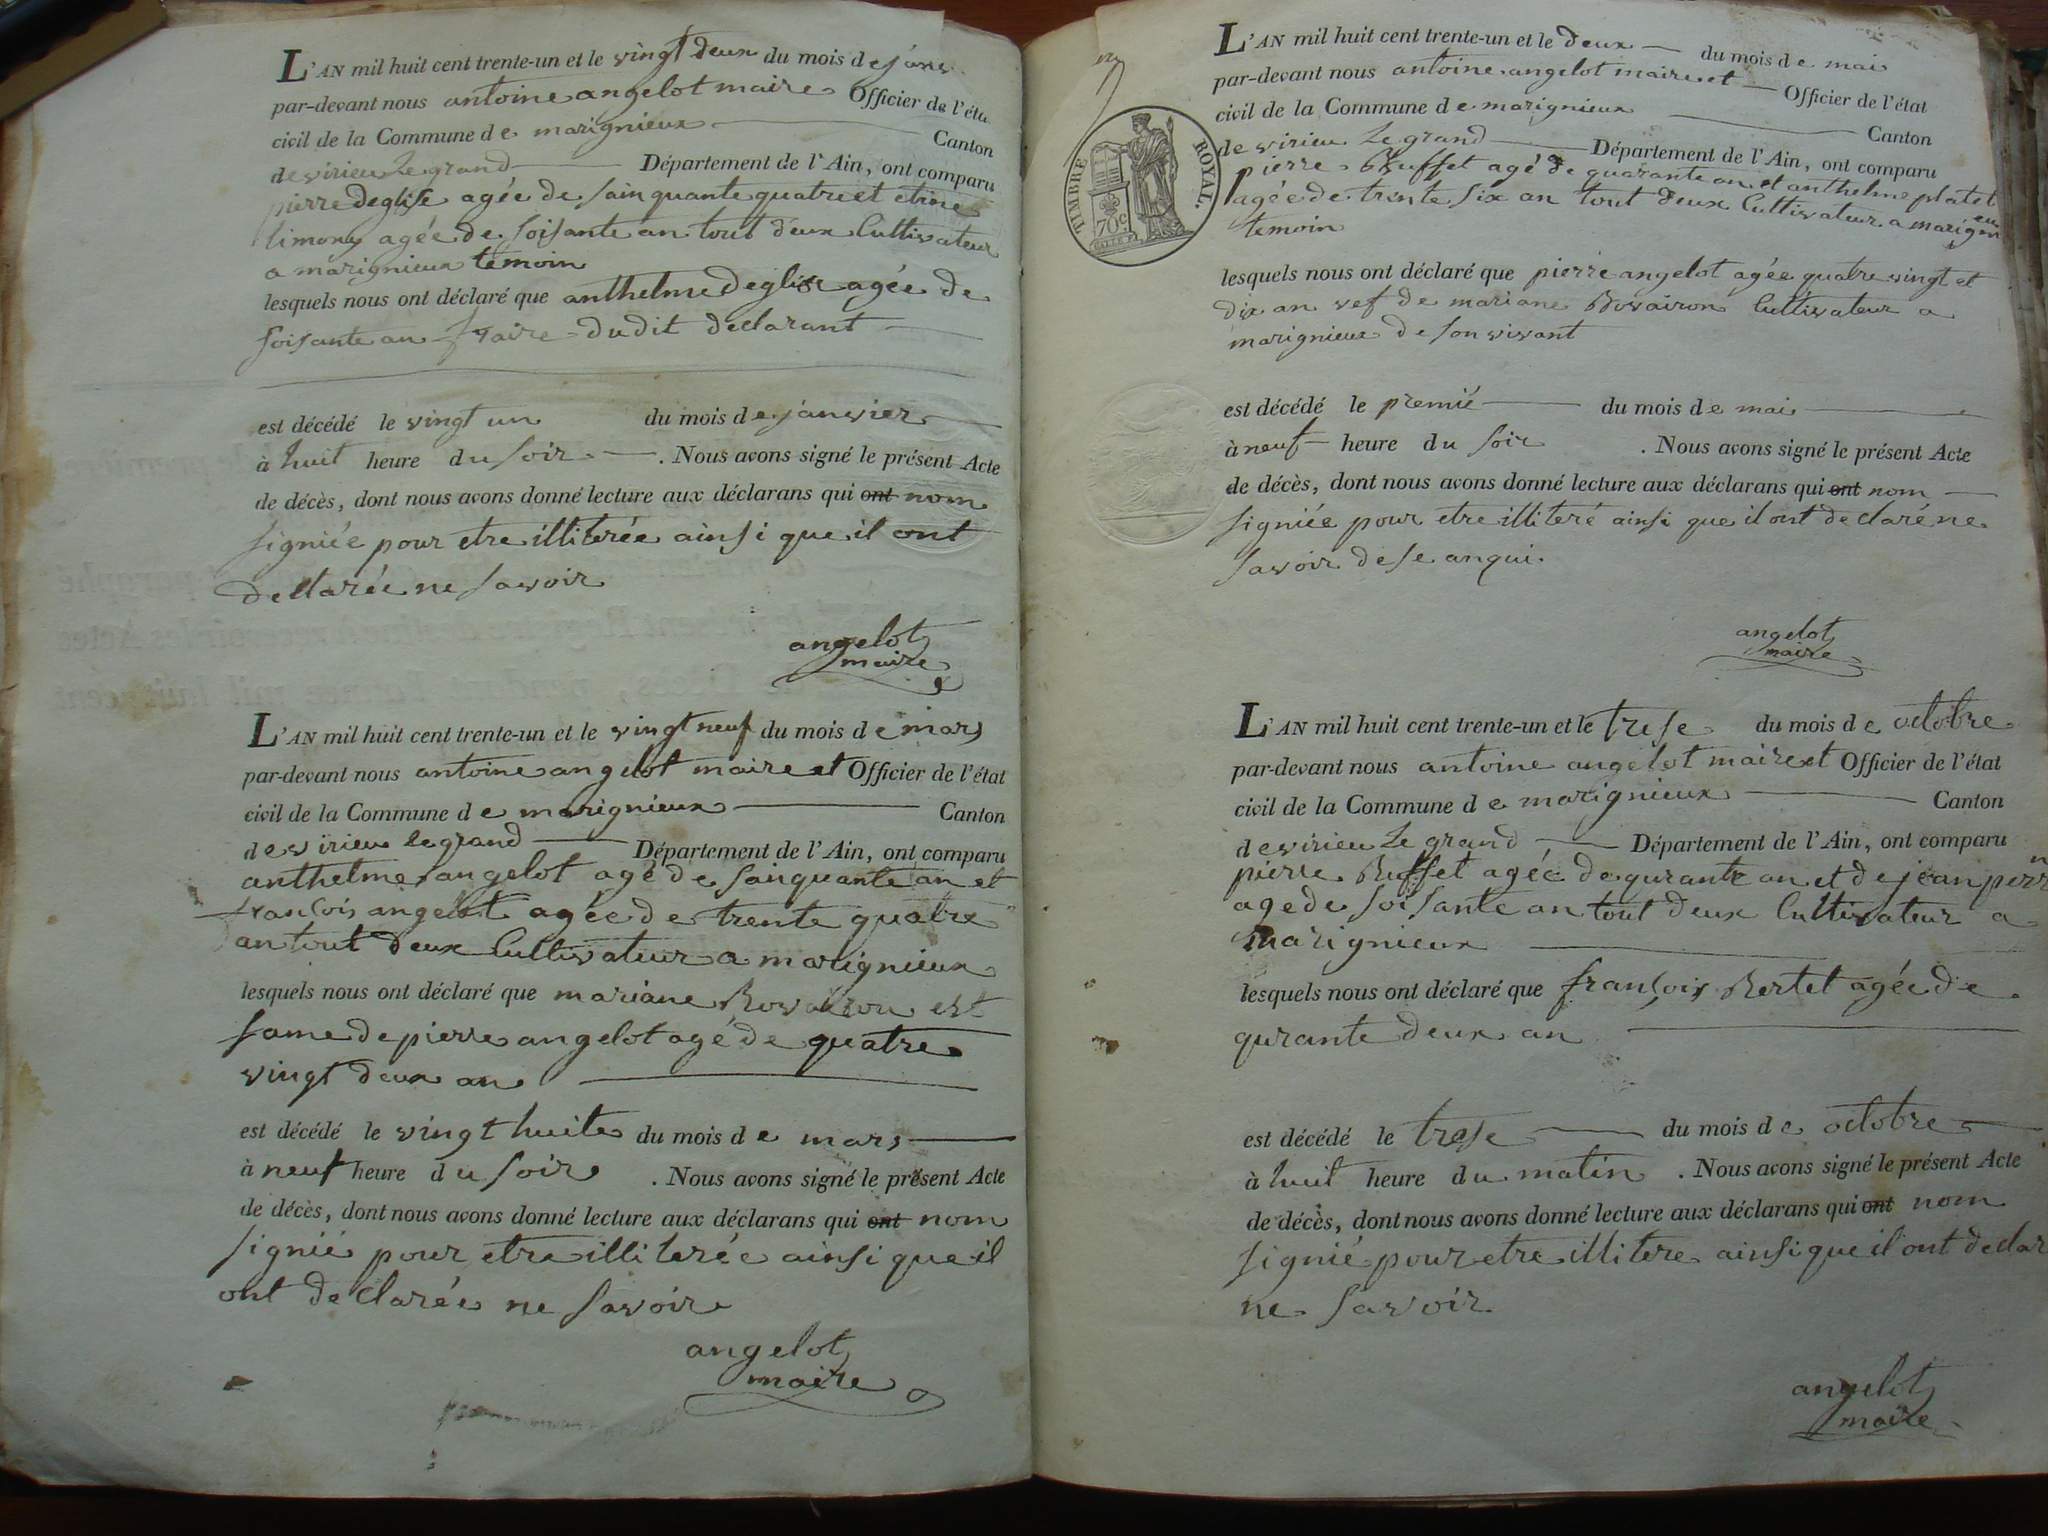 L'AN mil huit cent trente-un et le vingt deux du mois de janv
par-devant nous antoine angelot maire Officier de l'éta
civil de la Commune de marignieux Canton
de virieu Le grand Département de l'Ain, ont comparu
pierre Deglise agée de sainquante quatre et etine
limony agée de soisante an tout deux Cultivateur
a marignieux temoin
lesquels nous ont déclaré que anthelme Deglise agée de
soisante an fraire dudit declarant
est décédé le vingt un du mois de janvier
à huit heure du soir. Nous avons signé le présent Acte
de décès, dont nous avons donné lecture aux déclarans qui ont nom
signiée pour etre illiterée ainsi que il ont
declarée ne savoir
angelot
maire
L'AN mil huit cent trente-un et le vingt neuf du mois de mars
par-devant nous antoine angelot maire et Officier de l'état
civil de la Commune de marignieux Canton
de virieu le grand Département de l'Ain, ont comparu
anthelme angelot agé de sainquante an et
francois angelot agée de trente quatre
an tout deux Cultivateur a marignieux
lesquels nous ont déclaré que mariane Rovairon est
fame de pierre angelot agé de quatre
vingt deux an
est décédé le vingt huite du mois de mars
à neuf heure du soir. Nous avons signé le présent Acte
de décès, dont nous avons donné lecture aux déclarans qui ont nom
signié pour etre illiterée ainsi que il
ont declarée ne savoir
angelot
maire
TIMBRE ROYAL.
70c.
L'AN mil huit cent trente-un et le deux du mois de mai
par-devant nous antoine angelot maire et Officier de l'état
civil de la Commune de marignieux Canton
de virieu Le grand Département de l'Ain, ont comparu
pierre Buffet agé de quarante an et anthelme platet
agée de trente six an tout deux Cultivateur a marignieux
temoin
lesquels nous ont déclaré que pierre angelot agée quatre vingt et
dix an vef de mariane Rovairon Cultivateur a
marignieux de son vivant
est décédé le premié du mois de mai
à neuf heure du soir. Nous avons signé le présent Acte
de décès, dont nous avons donné lecture aux déclarans qui ont nom
signiée pour etre illiteré ainsi que il ont declaré ne
savoir de se anqui.
angelot
maire
L'AN mil huit cent trente-un et le trese du mois de octobre
par-devant nous antoine angelot maire et Officier de l'état
civil de la Commune de marignieux Canton
de virieu Le grand Département de l'Ain, ont comparu
pierre Buffet agée de qurante an et de jean
age de soisante an tout deux Cultivateur a
marignieux
lesquels nous ont déclaré que françois Bertet agée de
qurante deux an
est décédé le trese du mois de octobre
à huit heure du matin. Nous avons signé le présent Acte
de décès, dont nous avons donné lecture aux déclarans qui ont nom
signié pour etre illitere ainsi que il ont declar
ne savoir
angelot
maire